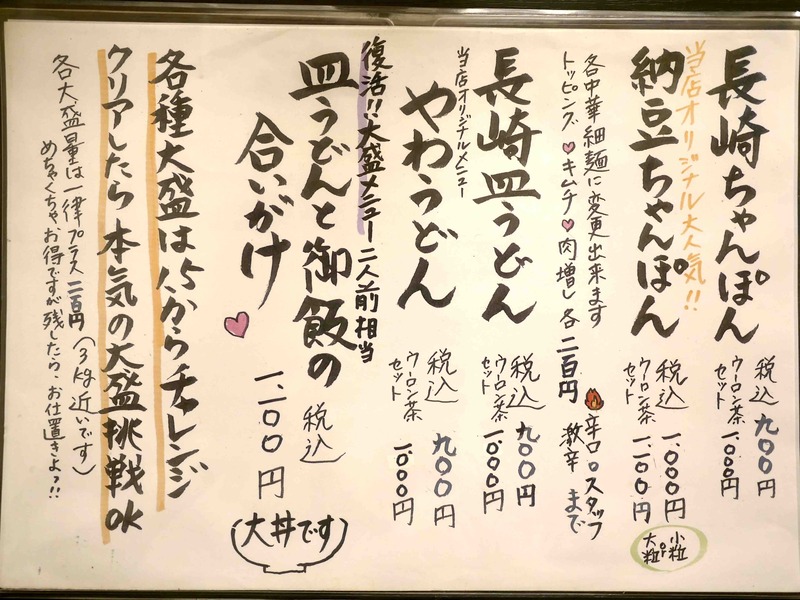 長崎ちゃんぽん
税込 九〇〇円
ウーロン茶セット 一、〇〇〇円
当店オリジナル大人気!!
納豆ちゃんぽん
税込 一、〇〇〇円
ウーロン茶セット 一、一〇〇円
小粒 or 大粒
各中華細麺に変更出来ます
トッピング ♥キムチ♥肉増し 各二百円
辛口。スタッフ
激辛まで
長崎皿うどん
税込 九〇〇円
ウーロン茶セット 一、〇〇〇円
当店オリジナルメニュー
やわうどん
税込 九〇〇円
ウーロン茶セット 一、〇〇〇円
復活!!大盛メニュー 二人前相当
皿うどんと御飯の
合いがけ
税込
一、二〇〇円
(大丼です)
各種大盛は1.5からチャレンジ
クリアしたら本気の大盛挑戦OK
各大盛量は一律プラス二百円(3kg近いです)
めちゃくちゃお得ですが残したら、お仕置きよっ!!